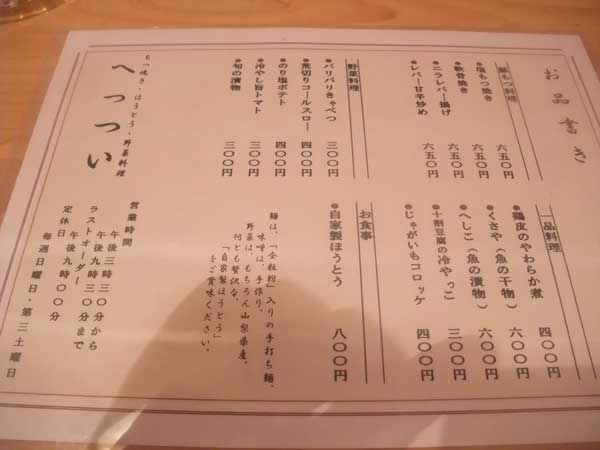 お品書き
豚もつ料理
●塩もつ焼き 六五〇円
●軟骨焼き 六五〇円
●ニラレバー揚げ 六五〇円
●レバー甘辛炒め 六五〇円
一品料理
●鶏皮のやわらか煮 四〇〇円
●くさや（魚の干物） 六〇〇円
●へしこ（魚の漬物） 六〇〇円
●十割豆腐の冷やっこ 三〇〇円
●じゃがいもコロッケ 四〇〇円
野菜料理
●バリバリきゃべつ 三〇〇円
●荒切りコールスロー 四〇〇円
●のり塩ポテト 四〇〇円
●冷やし旨トマト 三〇〇円
●旬の漬物 三〇〇円
お食事
●自家製ほうとう 八〇〇円
麺は、「全粒粉」入りの手打ち麺。
味噌は、手作り。
野菜は、もちろん山梨県産。
何とも贅沢な、
「自家製ほうとう」
をご賞味ください。
もつ焼き・ほうとう・野菜料理
へっつい
営業時間
午後三時三〇分から
午後九時三〇分まで
ラストオーダー
午後九時〇〇分
定休日
毎週日曜日・第三土曜日